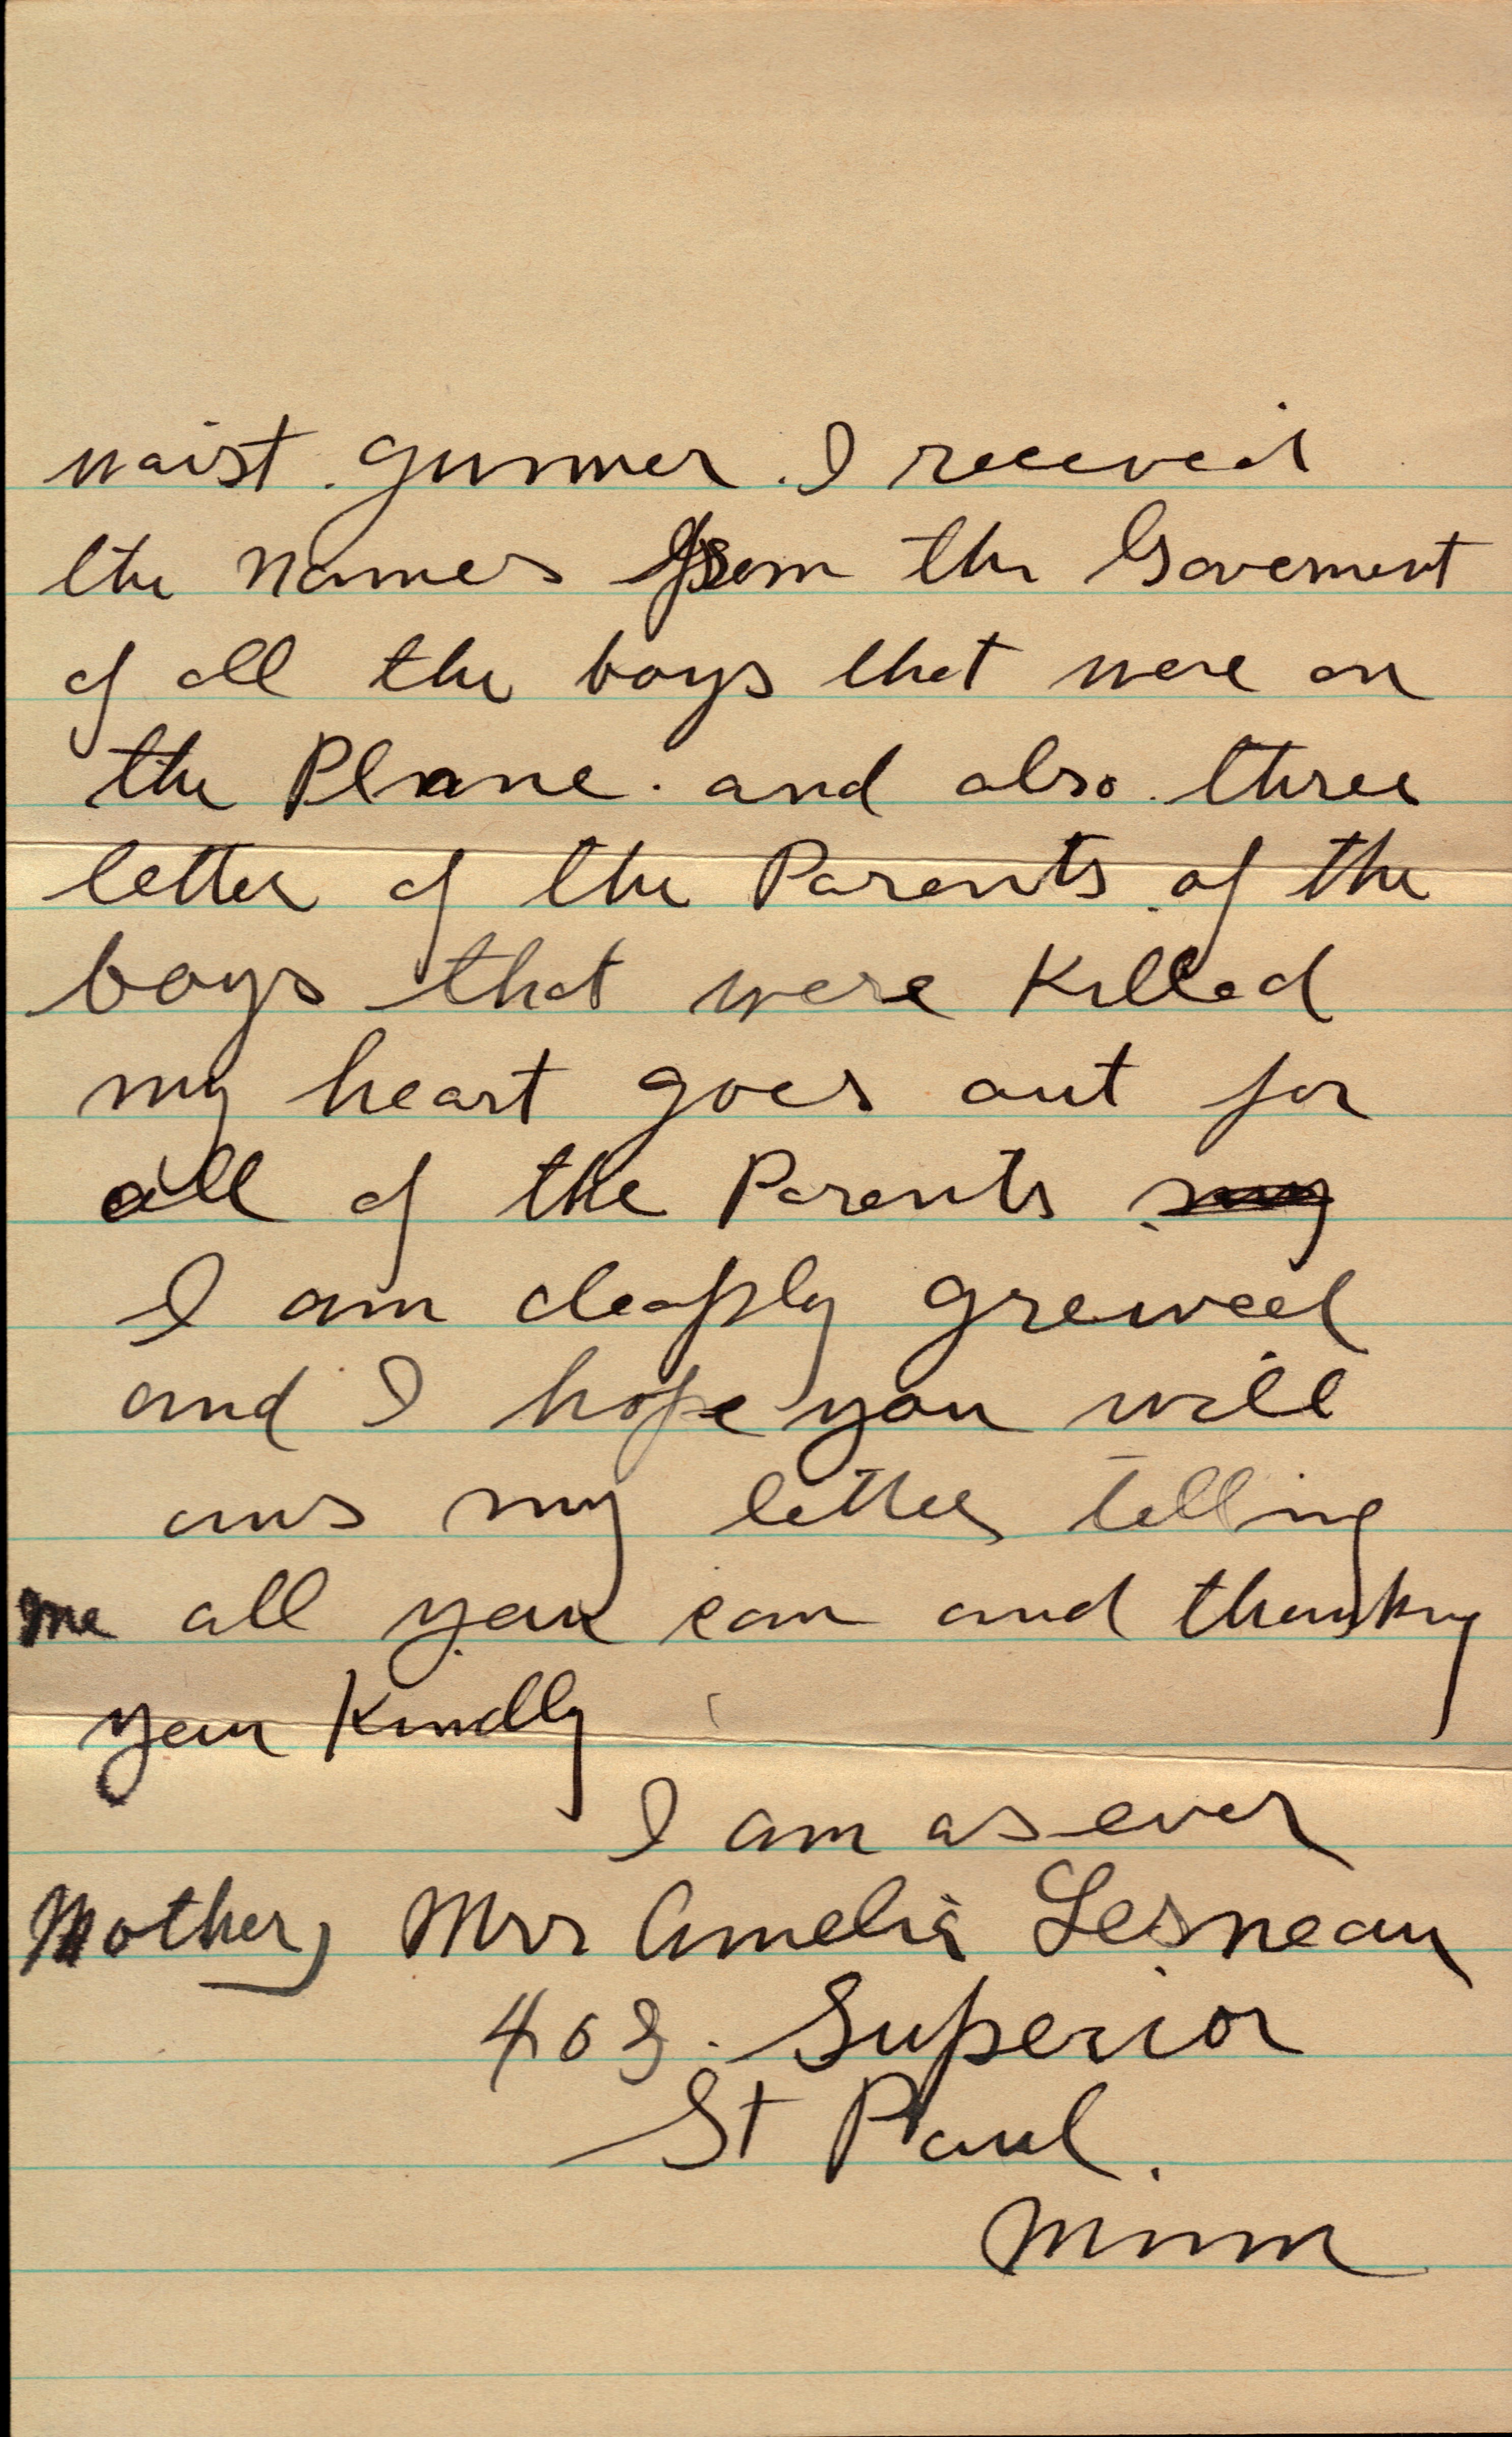 waist gunner. I receved
the names from the Goverment
of all the boys that were on
the Plane. and also three
letter of the Parents of the
boys that were Killed
my heart goes out for
all of the Parents my
I am deaply greived
and I hope you will
ans my letter telling
me all you can and thanking
you Kindly
I am as ever
Mother, Mrs Amelia Lesneau
403. Superior
St Paul.
Minn